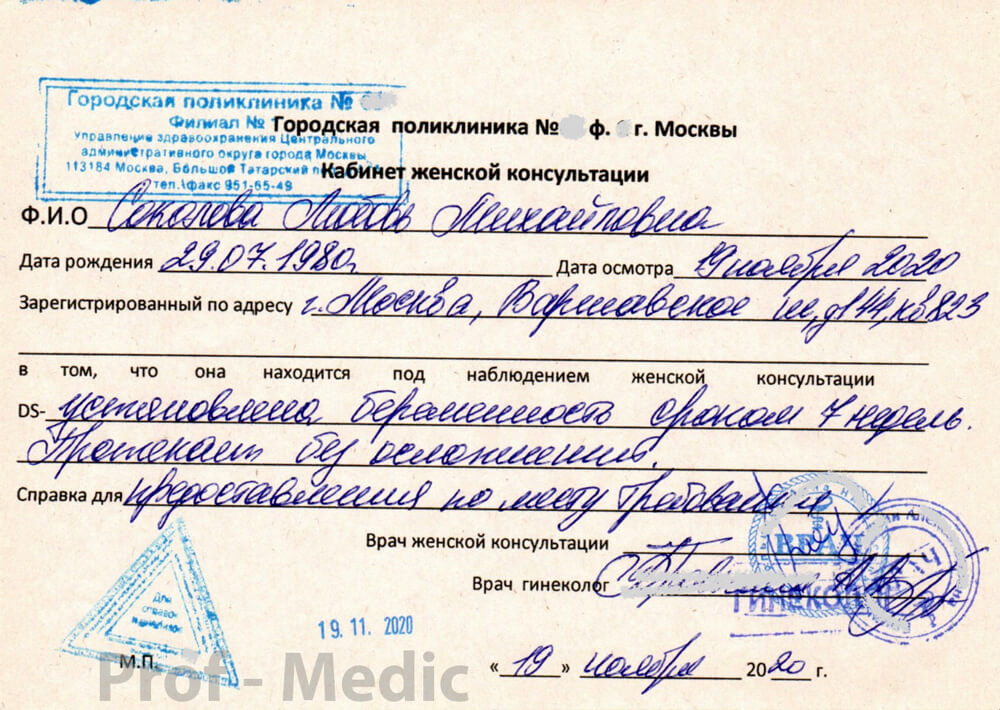 Городская поликлиника №
Филиал №
Управление здравоохранения Центрального
административного округа города Москвы
113184 Москва, Большой Татарский
тел.\факс 951-65-49
Городская поликлиника № ф. г. Москвы
Кабинет женской консультации
Ф.И.О Соколова Любовь Михайловна
Дата рождения 29.07.1980г Дата осмотра 19 ноября 2020
Зарегистрированный по адресу г. Москва, Варшавское ш, д144, кв823
в том, что она находится под наблюдением женской консультации
DS- установлена беременность сроком 7 недель.
Протекает без осложнений.
Справка для предоставления по месту требования
Врач женской консультации
ВРАЧ
Врач гинеколог
ГИНЕКОЛОГ
Для
справок
19.11.2020
М.П.
« 19 » ноября 2020 г.
Prof - Medic